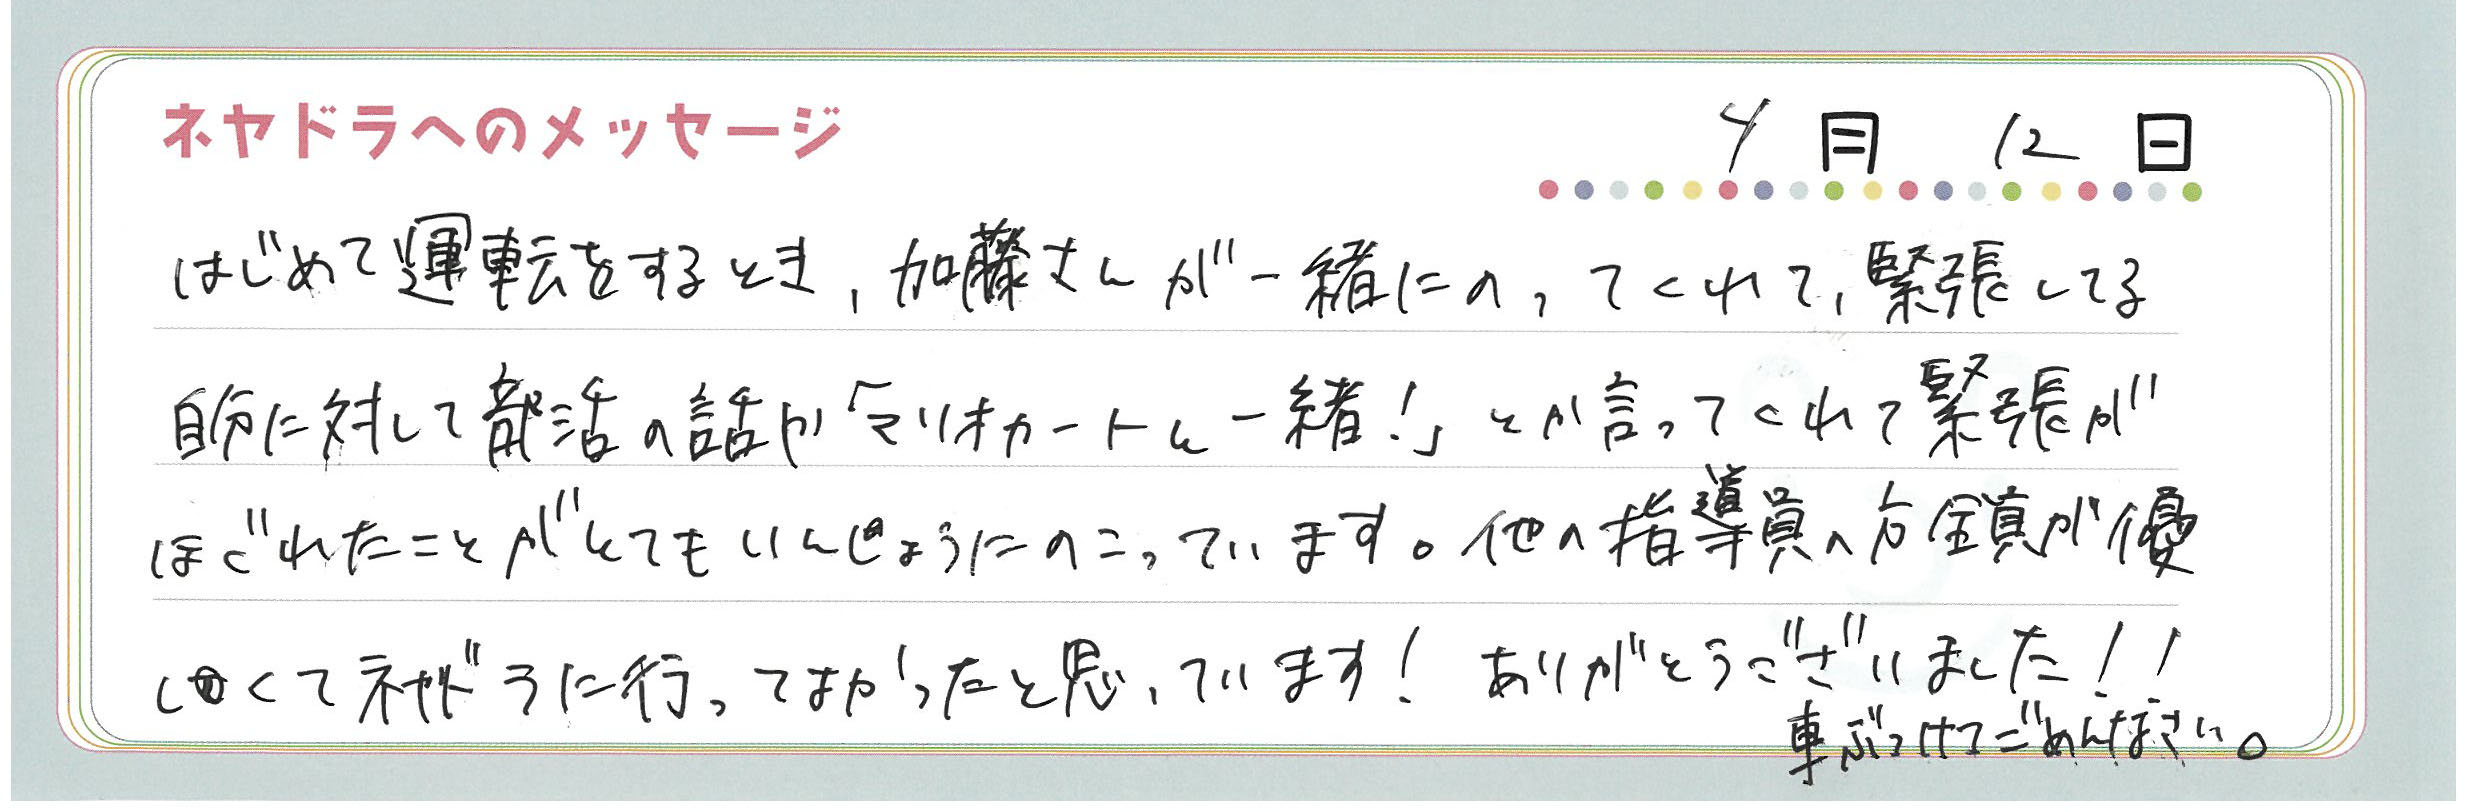 ネヤドラへのメッセージ
4月 12日
はじめて運転をするとき、加藤さんが一緒にのってくれて、緊張してる
自分に対して部活の話か「マリオカートと一緒！」とか言ってくれて緊張が
ほぐれたことがとてもいんしょうにのこっています。他の指導員の方全員が優
しくてネヤドラに行ってよかったと思っています！ ありがとうございました！！
車ぶつけてごめんなさい。